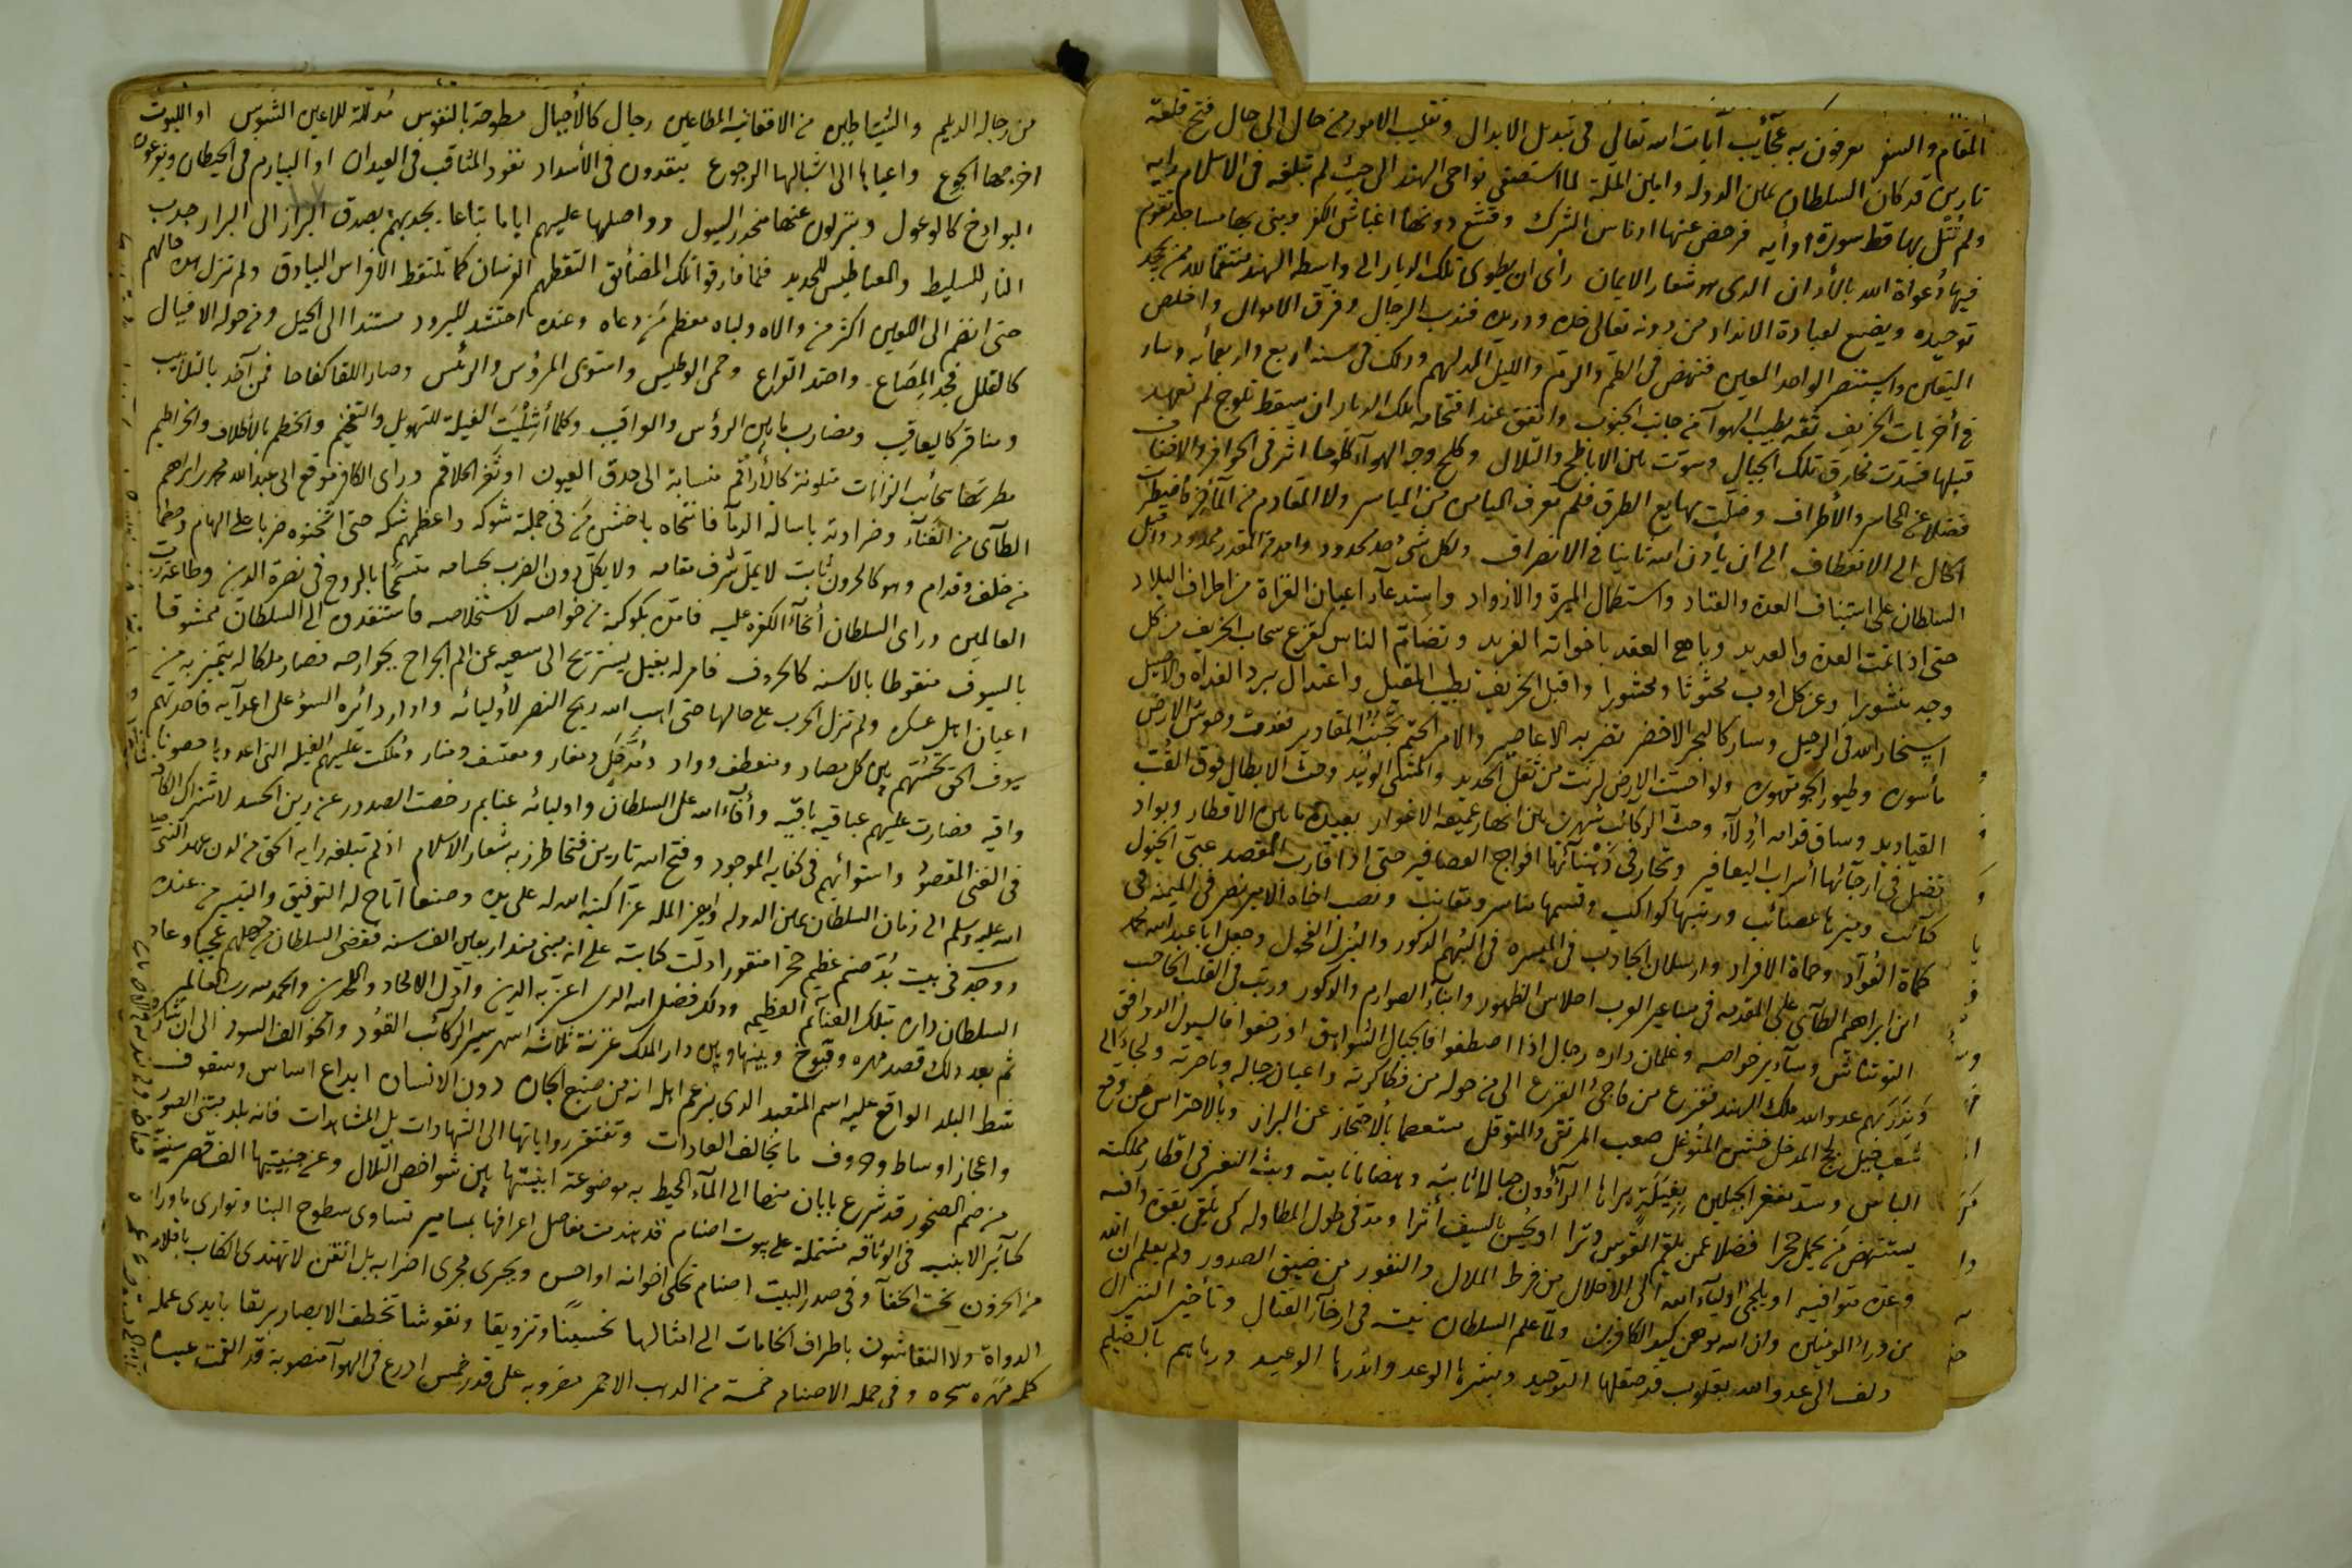 المقام والسفر يعرفون به عجآئب آيات الله تعالى فى تبديل الابدال وتقليب الامور من حال الى حال فتح قلعة
نارين قد كان السلطان يمين الدولة وامين الملة لما استصفى نواحى الهند الى حيث لم تبلغه فى الاسلام رايه
ولم تتل بها قط سورة اوآيه فرحض عنها ادناس الشرك وقشع دونها اغباش الكفر وبنى بها مساجد تقوم
فيها دعواة الله بالأذان الذى هو شعار الايمان رأى ان يطوى تلك الديار الى واسطة الهند منتقما لله ممن يجحد
توحيده ويضع لعبادة الانداد من دونه تعالى خده ووريده فندب الرجال وفرق الاموال واخلص
اليقين واستنصر الواحد المعين فنهض فى الطم والرم والليل المدلهم وذلك فى سنه اربع واربعمائه وسار
فى أخريات الخريف ثقه بطيب الهوآ من جانب الجنوب واتفق عند اقتحامه تلك الديار ان سقط ثلوج لم تعهد
قبلها فسدت مخارق تلك الجبال وسوت بين الاباطح والتلال وكلح وجه الهوآ كلوحا اثر فى الحوافر والاخفاف
فضلا عن المحاسر والأطراف وضلت مهايع الطرق فلم تعرف الميامن من المياسر ولا المقادم من المآخر
الحال الى الانعطاف الى ان يأذن الله ثانيا فى الانصراف ولكل شئ حد محدود وامد من المقدر ممدود واقبل
السلطان على استيناف العدة والعتاد واستكمال الميرة والازواد واستدعآء اعيان الغزاة من اطراف البلاد
حتى اذا تمت العدة والعديد وباهى العقد باخواته الفريد وتضام الناس كقزع سحاب الخريف من كل
وجه منشورا وعن كل اوب محثوثا ومحشورا واقبل الخريف بطيب المقيل واعتدال برد الغداه والاصيل
استخار الله فى الرحيل وسار كالبحر الاخضر تضربه الاعاصير والامر الحتم تجنبه المقادير فغدت وحوش الارض
مأسوره وطيور الجو مقهوره ولو احست الارض لرنت من ثقل الحديد والمشى الوئيد وحث الابطال فوق القب
القياديد وساق قدامه أدلآء وحث الركائب شهرين بين انهار عميقه الاغوار بعيدة ما بين الاقطار وبواد
تضل فى أرجآئها أسراب اليعافير وتحار فى دهنآئها افواج العصافير حتى اذا قارب المقصد عبى الخيول
كتائب وميزها عصائب ورتبها كواكب وقسمها مناسر ومقانب ونصب اخاه الامير نصر فى الميمنه فى
كماة القوآد وحماة الافراد وارسلان الجاذب فى الميسره فى البهم الذكور والبزل الفحول وجعل ابا عبد الله محمد
ابن ابراهيم الطآئى على المقدمه فى مساعير العرب احلاس الظهور وابنآء الصوارم والذكور ورتب فى القلب الحاجب
التونتاش وسآئر خواصه وغلمان داره رجال اذا اصطفوا فالجبال الشواهق اذ زحفوا فالسيول الدوافق
ونذر بهم عدوالله ملك الهند ففزع من فاجئ الفزع الى من حوله من فكاكرته واعيان رجاله وناصرته ولجأ الى
شعب جبل لج المدخل خشن المتوغل صعب المرتقى والمتوقل متعصما بالاحتجاز عن البراز وبالاحتراس عن وقع
الباس وسد مفغر الجبلين بفيلة يراها الرآؤون جبالا ثابته وهضابا نابته وبث النفير فى اقطار مملكته
يستنهض من يحمل حجرا فضلا عمن يلقم القوس وترا اويحسن بالسيف أثرا ومد فى طول المطاوله كى يلقى بقوة وافيه
وعدة متوافيه او يلجئ اوليآء الله الى الاخلال من فرط الملال والنفور من ضيق الصدور ولم يعلم ان الله
من ورآء المومنين وان الله موهن كيد الكافرين ولما علم السلطان نيته فى ارخآء القتال وتأخير النزال
دلف الى عدوالله بقلوب قد صقلها التوحيد وبشرها الوعد وانذرها الوعيد ورماهم بالصيلم
من رجاله الديلم والشياطين من الافغانيه المطاعين رجال كالأجبال مطوحة بالنفوس مدللة للاعين الشوس او الليوث
اخرجها الجوع واعياها الى اشبالها الرجوع ينقدون فى الأسداد نفوذ المثاقب فى العيدان او البيارم فى الحيطان ويفرعون
البواذخ كالوعول وينزلون عنها منحدر السيول وواصلها عليهم اياما تباعا يجذبهم بصدق البراز الى البراز جذب
النار للسليط والمغناطيس للحديد فلما فارقوا تلك المضائق التقطهم الفرسان كما تلتقط الافراس البيادق ولم تزل هذه حالهم
حتى انضم الى اللعين اكثر من والاه ولباه معظم من دعاه وعنده احتشد للبروز مستندا الى الجبل ومن حوله الافيال
كالقلل فجد المصاع واحتد القراع وحمى الوطيس واستوى المرؤس والرئيس وصار اللقا كفاحا فمن آخذ بالتلابيب
ومناقر كاليعاقيب ومضارب ما بين الرؤس والعراقيب وكلما أشليت الفيلة للتهويل والتفخيم والخطم بالأظلاف والخراطيم
مطرتها سحائب الزانات متلونة كالأراقم منسابة الى حدق العيون او ثغر الحلاقم وراى الكافر موقع ابى عبدالله محمد بن ابراهيم
الطآئى من الغنآء وضراوته باسالة الدمآ فانتحاه باخشن من فى جملة شوكه واعظمهم شكه حتى اثخنوه ضربا على الهام وطعنا
من خلف وقدام وهو كالحرون ثابت لا يمل شرف مقامه ولا يكل دون الضرب بحسامه متسمحا بالروح فى نصرة الدين وطاعة رب
العالمين وراى السلطان أنحآء الكفره عليه فامده بكوكبة من خواصه لاستخلاصه فاستنقذوه الى السلطان ممشوقا
بالسيوف منقوطا بالاسنه كالحروف فامر له بفيل يستريح الى سعيه عن الم الجراح بجوارحه فصار ملكا له يتميز به من
اعيان اهل عسكره ولم تزل الحرب على حالها حتى اهب الله ريح النصر لأوليائه وادار دائرة السوء على اعدآيه فاخذتهم
سيوف الحق تحشهم بين كل مصاد ومنعطف وواد ومدخل ومغار ومعتسف ومنار وملكت عليهم الفيله التى اعدوها حصونا
واقيه فصارت عليهم عباقيه باقيه وأفآء الله على السلطان واوليائه غنايم رحضت الصدور عن درن الحسد لاشتراك الكافه
فى الغنى المقصود واستوائهم فى كفايه الموجود وفتح الله نارين فتحا طرز به شعار الاسلام اذ لم تبلغه رايه الحق من لدن عهد النبى صلى
الله عليه وسلم الى زمان السلطان يمين الدوله وامين المله عزا كتبه الله له على يده وصنعا اتاح له التوفيق والتيسير من عنده
ووجد فى بيت بد صنم عظيم حجرا منقورا دلت كتابته على انه مبنى منذ اربعين الف سنه فقضى السلطان من جهلهم عجبا وعاد
السلطان داره بتلك الغنآئم العظيمه وذلك فضل الله الذى اعز به الدين واذل الالحاد والملحدين والحمد لله رب العالمين
ثم بعد ذلك قصد مهره وقنوج وبينهاو بين دار الملك غزنة ثلاثة اشهر سير الركائب القود
شط البلد الواقع عليه اسم المتعبد الذى يزعم اهله انه من صنيع الجان دون الانسان ابداع اساس وسقوف
واعجاز اوساط وحروف ما يخالف العادات وتفتقر رواياتها الى الشهادات بل المشاهدات فانه بلد مبنى السور
من ضم الصخور قد شرع بابان منها الى المآء المحيط به موضوعة ابنيتها بين شواخص التلال وعن جنبيتها الف قصر سنية
كسآئر الابنيه فى الوثاقه مشتملة على بيوت اصنام قد هندمت مفاصل اعرافها بمسامير تساوى سطوح البنا وتوارى ماوراء
من الحزون تحت الخفآ وفى صدر البيت اصنام تحكى اخوانه او احسن ويجرى مجرى اضرابه بل اتقن لا تهتدى الكتاب باقلام
الدواة ولا النقاشون باطراف الخامات الى امثالها تحسينا وتزويقا ونقوشا تخطف الابصار بريقا بايدى عمله
كلهم مهره سحره وفى جمله الاصنام خمسة من الذهب الاحمر مضروبه على قدر خمس اذرع فى الهوآ منصوبة قد القمت عينا